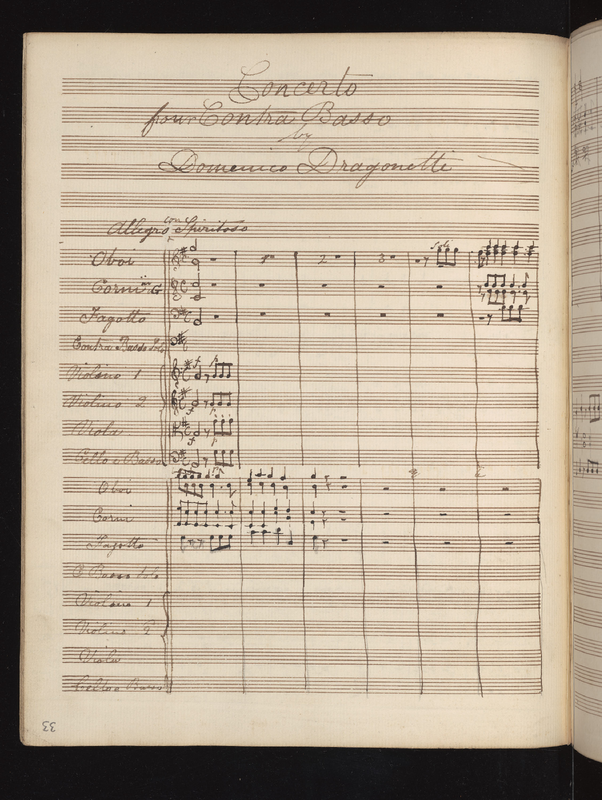 Concerto
four Contra Basso
by
Domenico Dragonetti
Allegro con Spiritoso
Oboi
1 2 3 Solo
Corni in G
Fagotto
Contra Basso Solo
Violino 1
f p
Violino 2
f p
Viola
f p
Cello e Basso
f p
Oboi
Corni
Fagotto
C Basso Solo
Violino 1
Violino 2
Viola
Cello e Basso
33